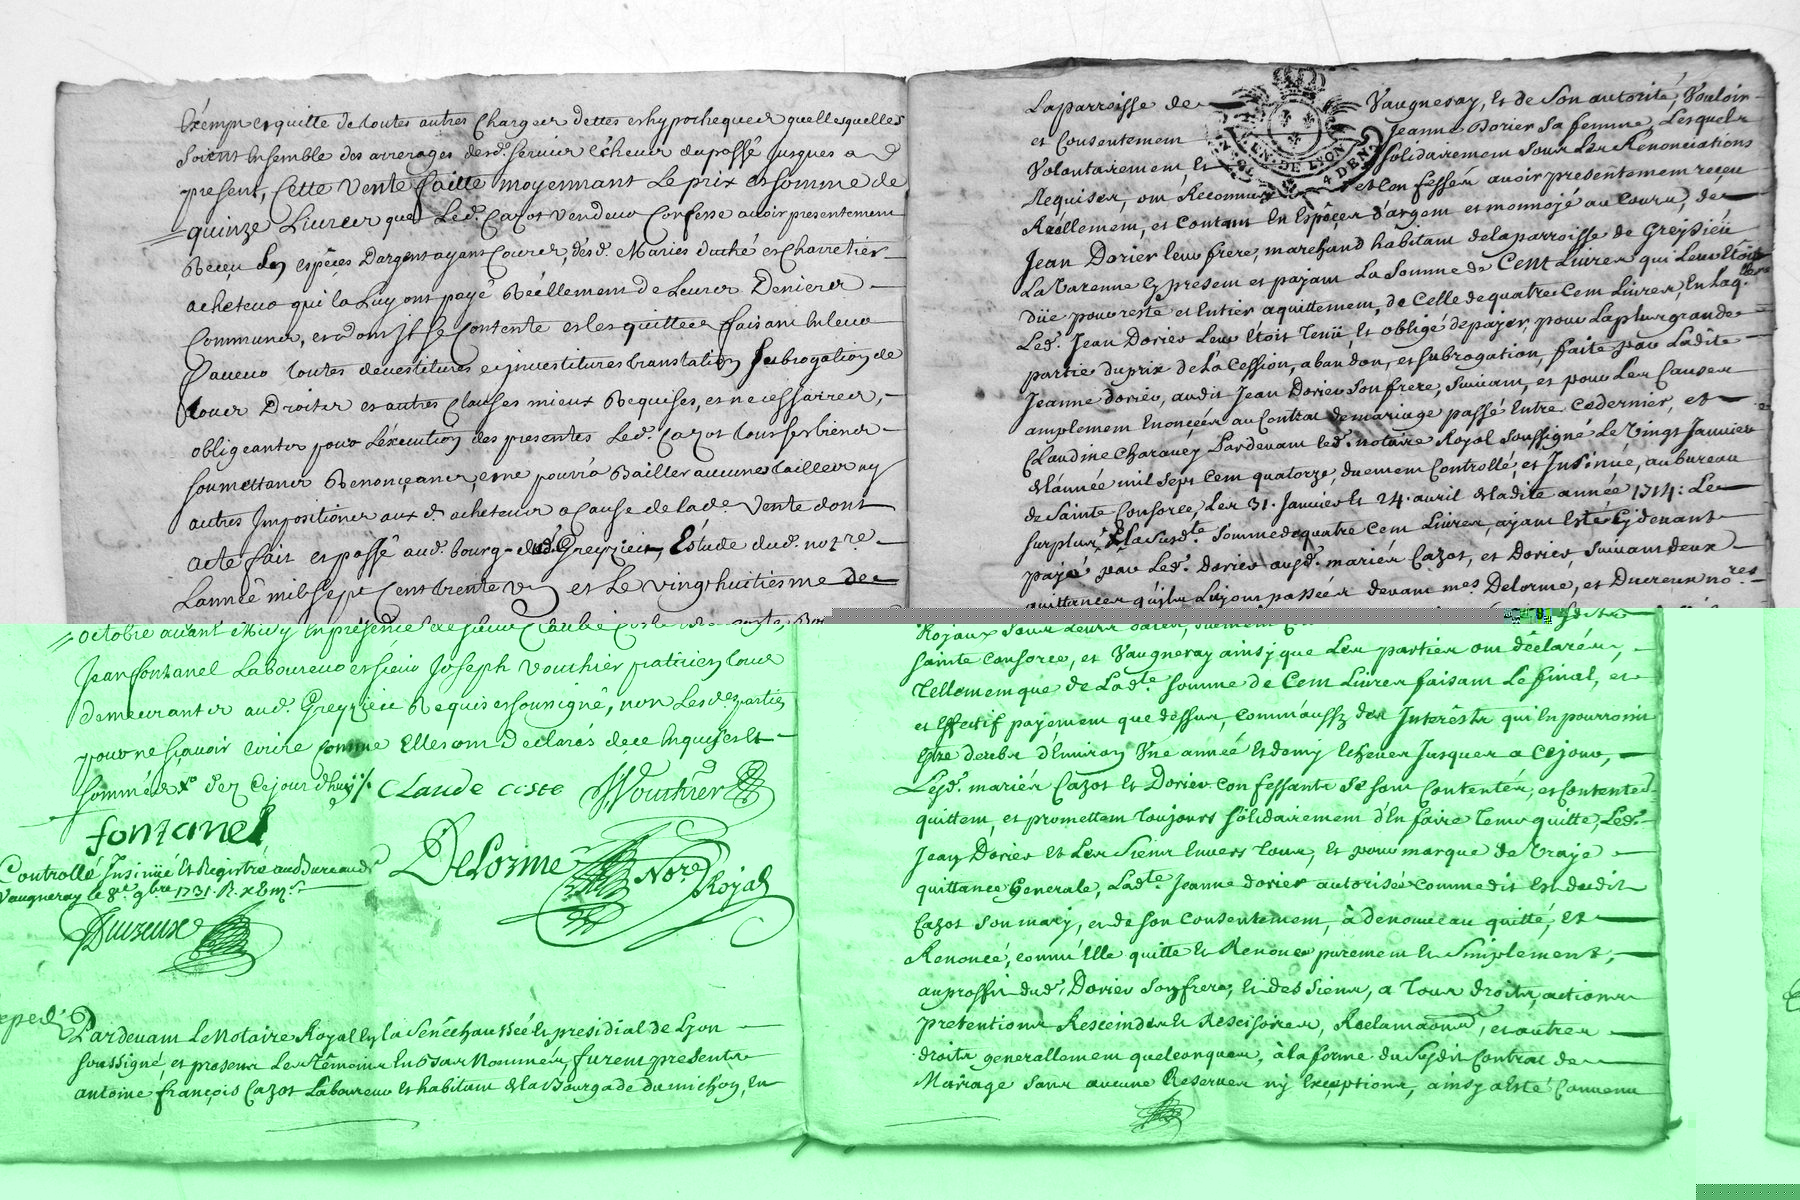 Exempt et quitte de toutes autres Charges dettes et hypotheques quelles quelles
soient Ensemble des arrerages desd. servier Echeux du passé Jusques a
present, Cette Vente faitte moyennant Le prix et somme de
quinze Livres que Led. Cazot Vendeur Confesse avoir presentement
Receu En espèces D'argent ayant Cours, desd. Mariés duché et Charretier
acheteur qui la Luy ont payé Réellement de Leurs Deniers
Communs, et dont Il se Contente et les quitte faisant En leur
faveur toutes devestitures et investitures translation subrogation de
tous Droits et autres Clauses mieux Requises, et necessaires,
obligeants pour L'execution des presentes Led. Cazot tous ses biens
soumettans Renonçeans, et ne pourra Bailler aucunes tailles ny
autres Impositions aux d. acheteurs a Cause de la de. Vente dont
acte fait et passé aud. bourg de Greyzieu Estude dud. notre.
L'année mil sept Cent trente un et Le vingt huitiesme de
octobre avant Midy En présence de
Jean fontanel Laboureur et sieur Joseph Vouthier patricien tous
demeurants aud. Greyzieu Requis et soussigné, non Les des. parties
pour ne sçavoir Ecrire Comme Elles ont Declarés de ce Enquises Et
sommées dez Cejourd'huy
CLaude coste JVouthier
fontanel
Controllé Insinüé Et Registré au Bureau de
Vaugneray le 8e. 9bre. 1731. R.
DeLorme Nore. Royal
Ducreux
exped.
Pardevant Le Notaire Royal En la Sénéchaussée Et presidial de Lyon
soussigné, et presens Les témoins En bas Nommés, furent presents
antoine françois Cazot Laboureur Et habitant de la Bourgade du michon, En
La parroisse de Vaugneray, Et de son autorité, Vouloir
et Consentement Jeanne Dorier sa femme, Lesquels
Volontairement, Et solidairement sous Les Renonciations
Requises, ont Reconnus et Confessés avoir presentement receu
Réellement, et Contant En Espèces d'argent et monnoyé au Cours, de
Jean Dorier Leur frere, marchand habitant de la parroisse de Greysieu
La Varenne Cy present et payant La Somme de Cent Livres qui Leur Etoit
düe pour reste et Entier aquittement, de Celle de quatre Cent Livres, En Laq.
Led. Jean Dorier Leur Etoit Tenü, Et obligé de payer pour La plus grande
partie du prix de La Cession, abandon, et subrogation, faite par Ladite
Jeanne dorier, audit Jean Dorier son frere, suivant, et pour Les Causes
amplement Enoncées au Contrat de mariage passé Entre Ce dernier, et
Claudine Charavey Pardevant led. notaire Royal soussigné Le Vingt Janvier
de L'année mil sept Cent quatorze, duement Controllé, et Insinué, au bureau
de Sainte Consorce, Les 31. Janvier Et 24. avril de ladite année 1714: Le
surplus de La susdte. somme de quatre Cent Livres, ayant Esté Cy devant
payé par Led. Dorier ausd. mariés Cazot, et Dorier, suivant deux
quittances qu'ils Luy ont passées devant mes Delorme, et Ducreux nores.
Royaux sous Leurs dates, duement
sainte Consorce, et Vaugneray ainsy que Les parties ont déclarées,
Tellement que de Ladte. somme de Cent Livres faisant Le final, et
et Effectif payement que dessus, Comm'aussy des Interêsts qui En pourroient
Estre deubs d'Environ Une année Et demy Echeues Jusques a Cejour,
Lesd. mariés Cazot Et Dorier Confessants se sont Contentés, et Contentent
quittent, et promettent Toujours solidairement d'En faire Tenir quitte, Led.
Jean Dorier Et Les Siens Envers Tous, Et pour marque de Vraye
quittance Generale, Ladte. Jeanne dorier autorisée comme dit Est dudit
Cazot son mary, et de son Consentement, à de nouveau quitté, Et
Renoncé, comm'Elle quitte Et Renonce purement Et Simplement,
au proffit dud. Dorier son frere, Et des Siens, a Tous droits, actions
pretentions Rescindants Et Rescisoires, Reclamaons, et autres
droits generallement quelconques, à la forme du Susdit Contrat de
Mariage sans aucune Reserves ny Exceptions, ainsy a Esté Convenu